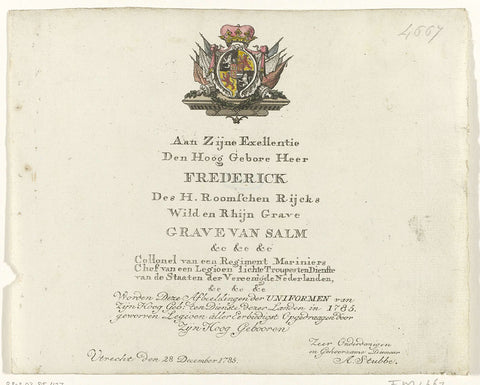 4667
Aan Zijne Exellentie
Den Hoog Gebore Heer
FREDERICK
Des H. Roomſchen Rijcks
Wild en Rhijn Grave
GRAVE VAN SALM
&c &c &c
Collonel van een Regiment Mariniers
Chef van een Legioen lichte Troupes ten Dienſte
van de Staaten der Vereenigde Nederlanden,
&c &c &c
Worden Deze Afbeeldingen der UNIFORMEN van
Zyn Hoog Geb: ten Dienste dezer Landen in 1785,
geworven Legioen aller Eerbiedigst Opgedraagen door
Zyn Hoog Gebooren
Zeer Onderdanigen
en Gehoorzame Dienaar
Utrecht den 28 December 1785.
A. Stubbe.